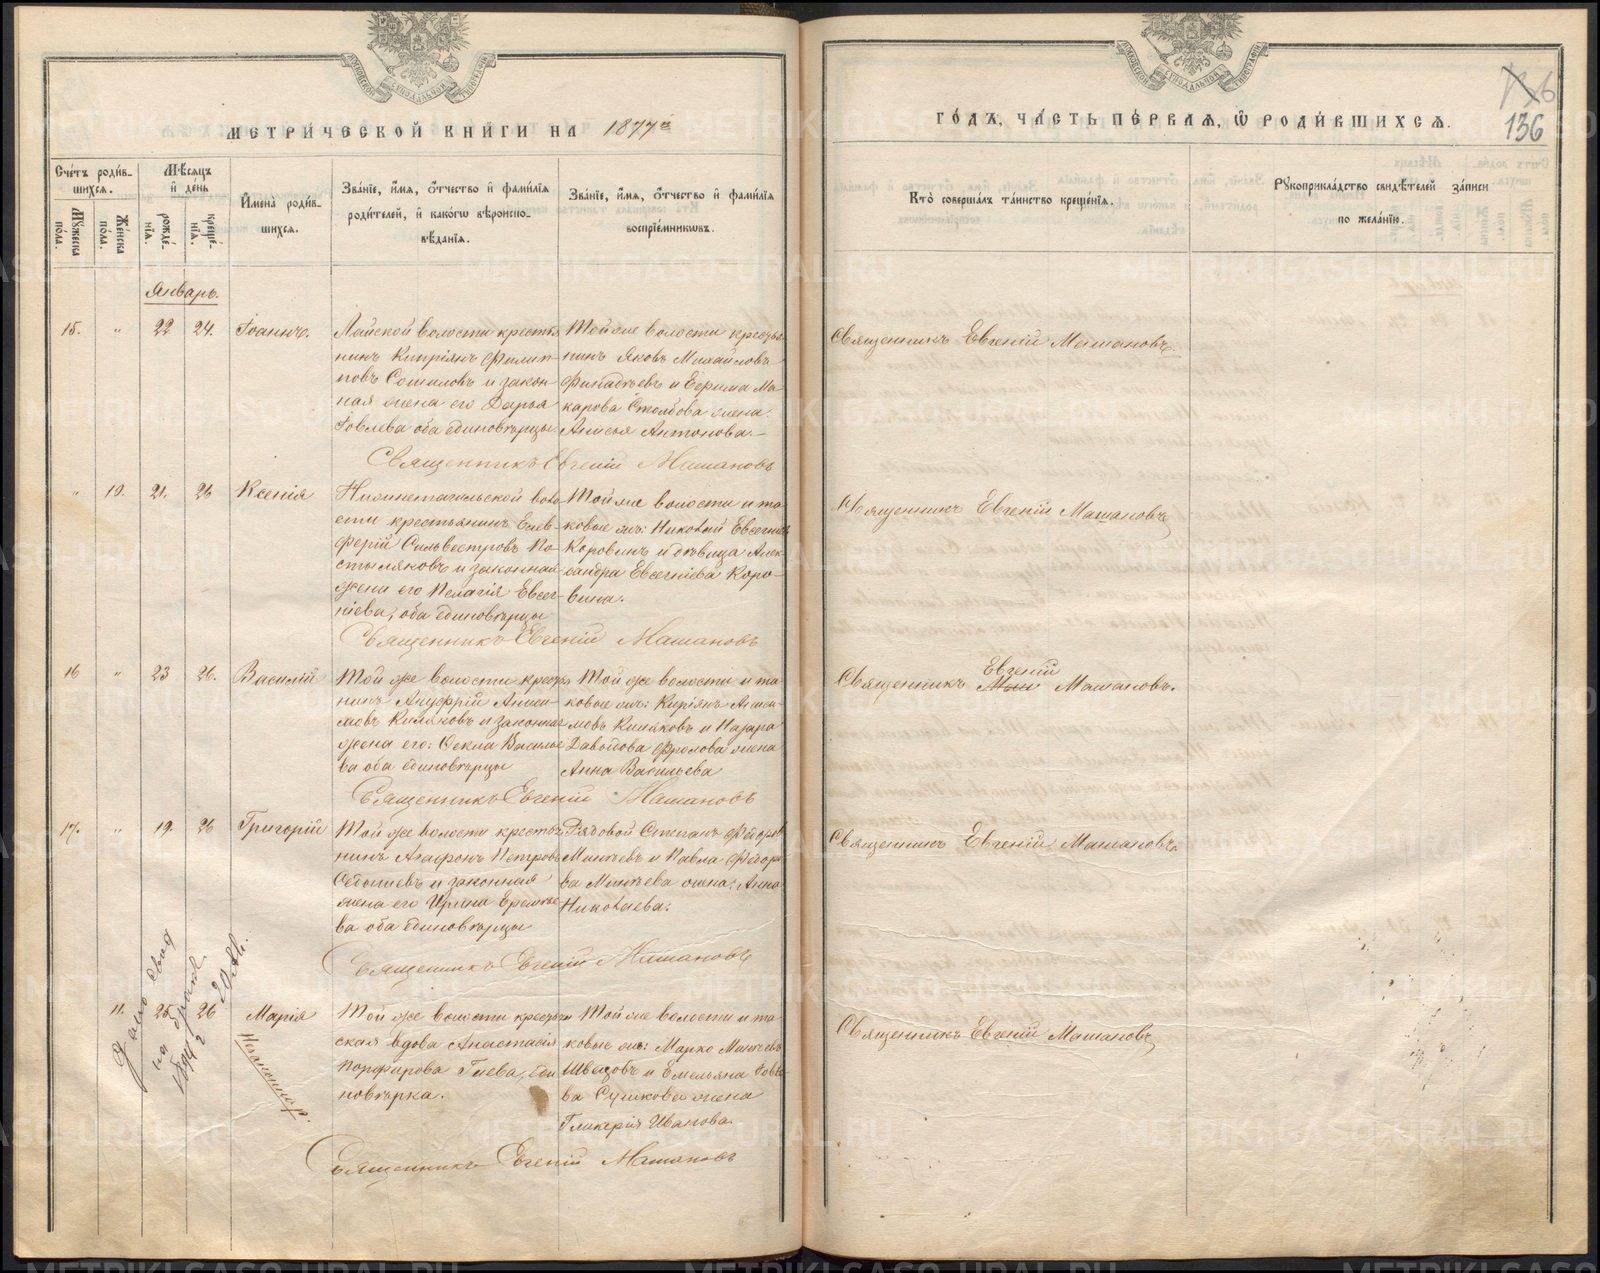 МЕТРИ́ЧЕСКОЙ КНИ́ГИ НА 1877й
Сче́тъ роди́в-
шихся.
Мѣ́сяцъ
и҆ день
Мꙋжеска
пола.
Же́нска
пола.
рожде́-
нїѧ.
креще́-
нїѧ.
И҆мена̀ роди́в-
шихся.
Зва́нїе, и҆́мѧ, ѻ҆́тчество и҆ фами́лїѧ
роди́телей, и҆ како́гѡ вѣроиспо-
вѣ́данїѧ.
Зва́нїе, и҆́мѧ, ѻ҆́тчество и҆ фами́лїѧ
воспрїе́мникѡвъ.
Январь.
15. " 22 24. Іоаннъ.
Лайской волости крестья
нинъ Кипріянъ Филип-
повъ Сошиловъ и закон-
ная жена его Дарья
Іовлева оба единовѣрцы
Той же волости крестья
нинъ Яковъ Михайловъ
Финадѣевъ и Ефрима Ма-
карова Столбова жена
Анисья Антонова.
Священникъ Евгеній Машановъ
" 10. 21. 26 Ксенія
Нижнетагильской воло
сти крестьянинъ Елев-
ферій Сильвестровъ По-
стыляковъ и законная
жена его Пелагія Евсег-
ніева, оба единовѣрцы
Той же волости и та-
ковые жъ: Николай Евсегніевъ
Коровинъ и дѣвица Алек-
сандра Евсегніева Коро-
вина.
Священникъ Евгеній Машановъ
16 " 23 26. Василій
Той же волости кресть
нинъ Ануфрій Аниси-
мовъ Киляковъ и законная
жена его: Ѳекла Василье
ва оба единовѣрцы
Той же волости и та-
ковые жъ: Киріянъ Аниси-
мовъ Киляковъ и Назара
Давыдова Фролова жена
Анна Васильева
Священникъ Евгеній Машановъ
17. " 19. 26 Григорій
Той же волости кресть
нинъ Агафонъ Петровъ
Ѳедосиевъ и законная
жена его Ирина Еремѣе
ва оба единовѣрцы
Рядовой Степанъ Ѳедоров
Минѣевъ и Павла Ѳедоро
ва Минѣева жена: Анна
Николаева.
Священникъ Евгеній Машановъ
11. 25 26 Марія
Незаконнор.
на бракъ
1894 г.
Той же волости крестьян
ская вдова Анастасія
Порфирова Гилева, еди
новѣрка.
Той же волости и та-
ковые жъ: Марко Минѣевъ
Швецовъ и Емельяна Іовле-
ва Сушкова жена
Гликерія Иванова.
Священникъ Евгеній Машановъ
136
136
МОСКОВСКОЙ СѴНОДАЛЬНОЙ ТИПОГРАФІИ
ГО́ДЪ, ЧА́СТЬ ПЕ́РВАѦ, Ѡ҆ РОДИ́ВШИХСѦ.
Кто̀ соверша́лъ та́инство креще́нїѧ.
Рꙋкоприкла́дство свидѣ́телей за́писи
по жела́нїю.
Священникъ Евгеній Машановъ.
Священникъ Евгеній Машановъ
Евгеній
Священникъ Машановъ.
Священникъ Евгеній Машановъ.
Священникъ Евгеній Машановъ
METRIKI.GASO-URAL.RU